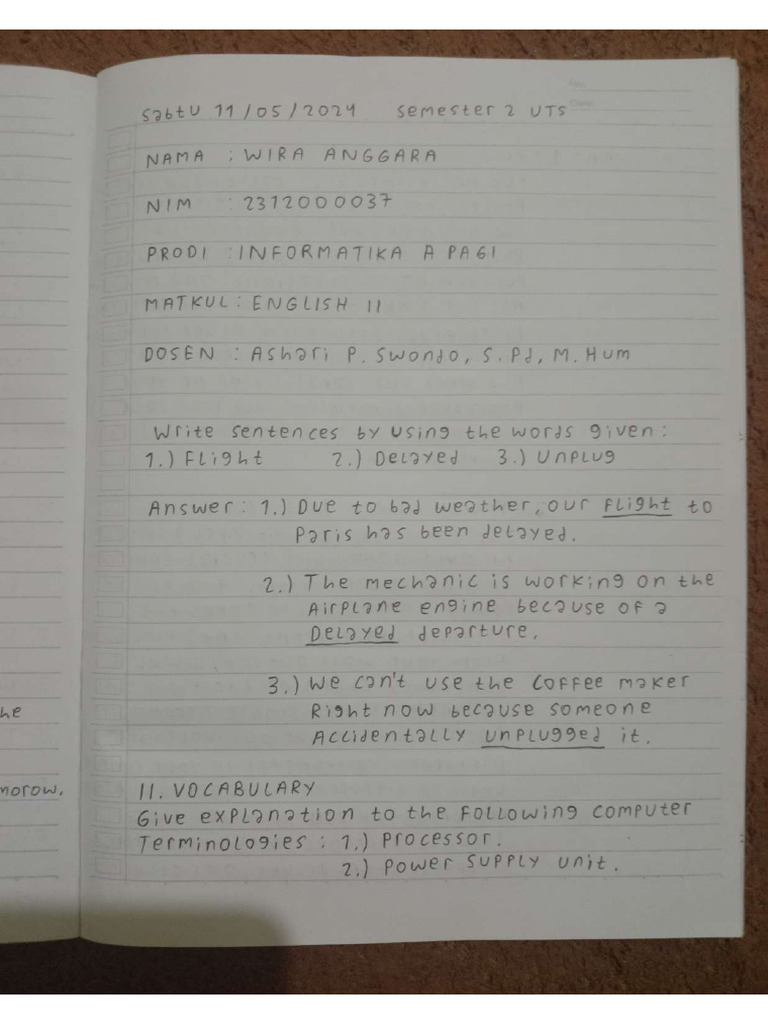 Sabtu 11/05/2024 Semester 2 UTS
NAMA : WIRA ANGGARA
NIM : 2312000037
PRODI : INFORMATIKA A PAGI
MATKUL : ENGLISH II
DOSEN : Ashari P. Swondo, S.Pd, M.Hum
Write sentences by using the words given :
1.) Flight 2.) Delayed 3.) Unplug
Answer : 1.) Due to bad weather, our flight to
Paris has been delayed.
2.) The mechanic is working on the
Airplane engine because of a
Delayed departure.
he
3.) We can't use the coffee maker
Right now because someone
Accidentally unplugged it.
morow.
II. VOCABULARY
Give explanation to the following computer
Terminologies : 1.) Processor.
2.) Power supply unit.